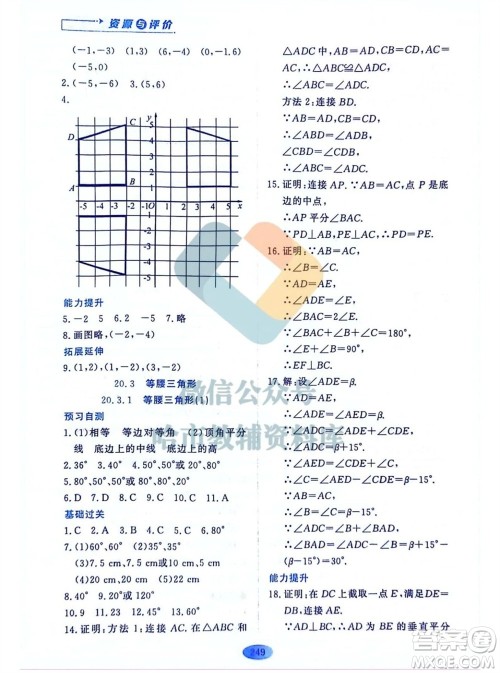 资源与评价
(-1,-3) (1,3) (6,-4) (0,-1.6)
(-5,0)
2.(-5,-6) 3.(5,6)
4.
D C A B
y
5
4
3
2
1
-5 -4 -3 -2 -1O 1 2 3 4 5 x
-1
-2
-3
-4
-5
能力提升
5.-2 5 6.2 -2 7.略
8.画图略,(-1,-4)
拓展延伸
9.(1,2),(1,-2),(3,-2)
20.3 等腰三角形
20.3.1 等腰三角形(1)
预习自测
1.(1)相等 等边对等角 (2)顶角平分
线 底边上的中线 底边上的高
2.36° 3.45° 4.70°,40°或55°,55°
5.80°,50°或20°,80° 6.D 7.D
基础过关
1.C 2.A 3.C 4.D 5.C 6.A
7.(1)60°,60° (2)35°,35°
(3)7.5 cm或5 cm
(4)19 cm或20 cm (5)22 cm
8.40° 9.20°或120°
10.9 11.4 12.36 13.36°
14.证明:方法1:连接AC.在△ABC和
△ADC中,∵AB=AD,BC=DC,AC=
AC,∴△ABC≌△ADC.
∴∠ABC=∠ADC.
方法2:连接BD.
∵AB=AD,CB=CD,
∴∠ABD=∠ADB,
∠CBD=∠CDB.
∴∠ABC=∠ADC.
15.证明:连接AP.∵AB=AC,点P是底
边的中点,
∴AP平分∠BAC.
∵PD⊥AB,PE⊥AC,
∴PD=PE.
16.证明:∵AB=AC,
∴∠B=∠C.
∵AD=AE,
∴∠ADE=∠AED.
∵∠B+∠C+∠ADE+∠AED=180°,
∴∠B+∠ADE=90°.
∴∠EFB=90°.
∴EF⊥BC.
17.解:设∠ADE=β.
∵AD=AE,
∴∠AED=∠ADE=β.
∴∠ADC=β+15°.
∵AB=AC,
∴∠B=∠C=β-15°.
∵∠ADC=∠B+∠BAD,
∴∠BAD=∠ADC-∠B=β+15°-
(β-15°)=30°.
能力提升
18.证明:在DC上截取一点E,满足DE=
DB,∵AD⊥BC,∴AD为BE的垂直平分
249
微信公众号
哈市教辅资料库
答案圈
MXQE.COM